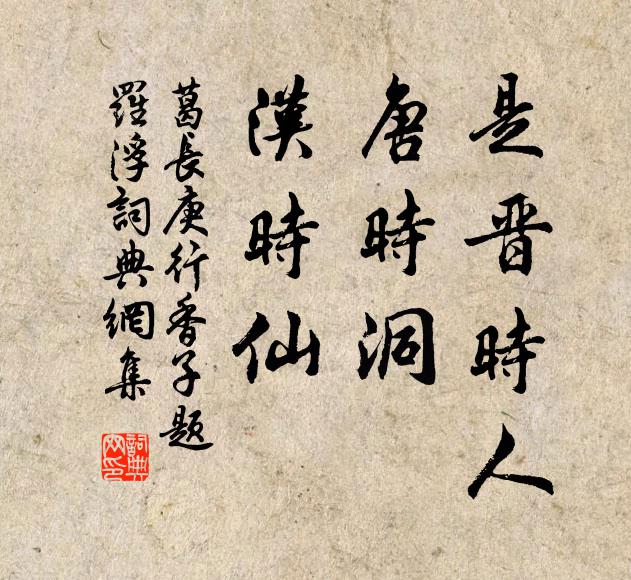 是晋時人
唐時洞
漢時仙
葛長庚行香子題
羅浮詞典網集
詞典
网印